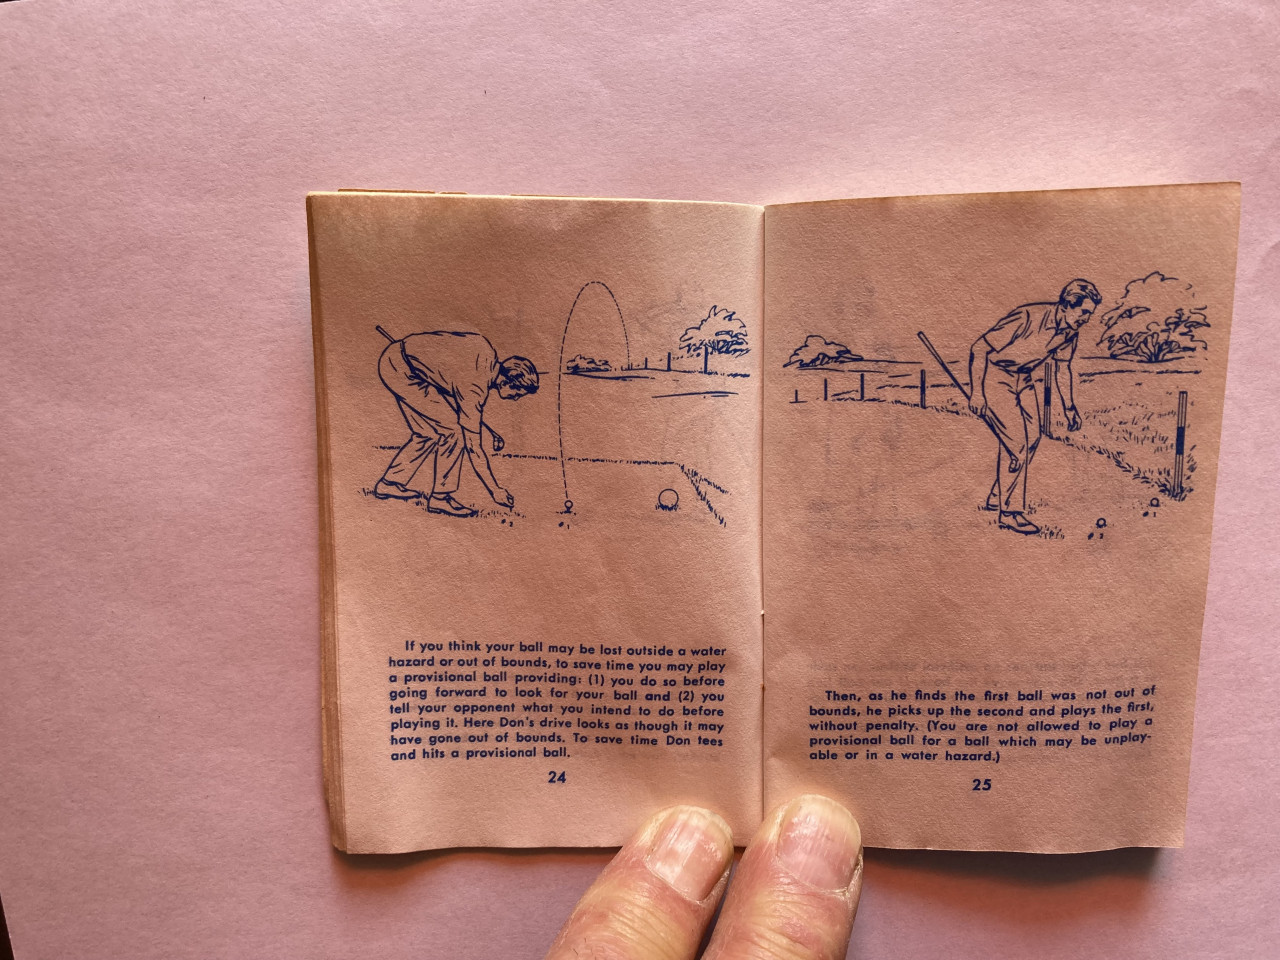 # 2
# 1
If you think your ball may be lost outside a water
hazard or out of bounds, to save time you may play
a provisional ball providing: (1) you do so before
going forward to look for your ball and (2) you
tell your opponent what you intend to do before
playing it. Here Don's drive looks as though it may
have gone out of bounds. To save time Don tees
and hits a provisional ball.
24
# 2
# 1
Then, as he finds the first ball was not out of
bounds, he picks up the second and plays the first,
without penalty. (You are not allowed to play a
provisional ball for a ball which may be unplay-
able or in a water hazard.)
25